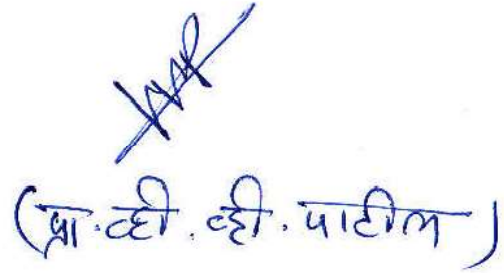 (प्रा. व्ही. व्ही. पाटील)